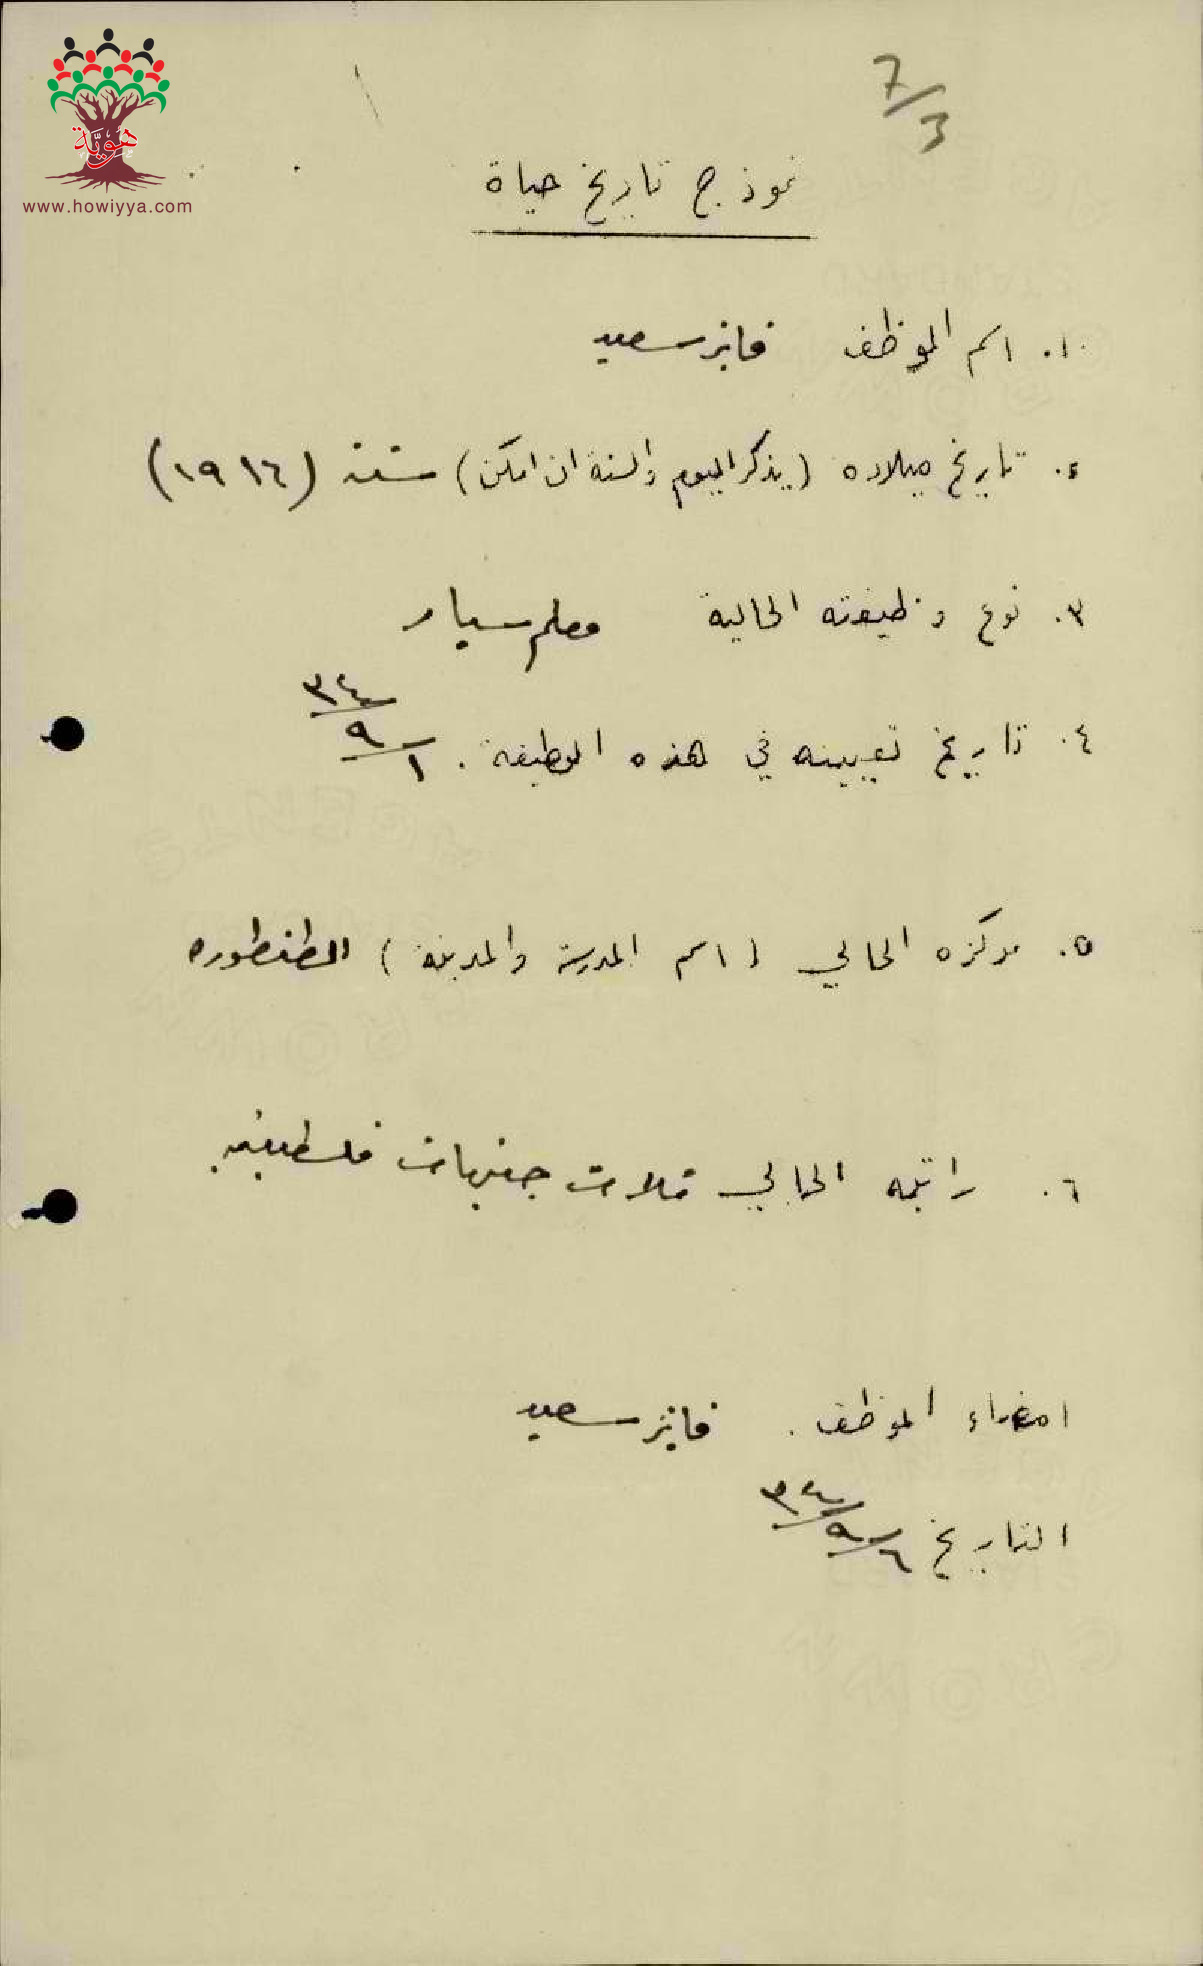 هوية
www.howiyya.com
7/3
نموذج تاريخ حياة
١. اسم الموظف فايز سعيد
٢. تاريخ ميلاده (يذكر اليوم والسنة ان امكن) سنة (١٩١٦)
٣. نوع وظيفته الحالية معلم سيار
٤. تاريخ تعيينه في هذه الوظيفة . ١/٩/٣٤
٥. مركزه الحالي (اسم المدرسة والمدينة) الطنطوره
٦. راتبه الحالي ثلاث جنيهات فلسطينيه
امضاء الموظف . فايز سعيد
التاريخ ٦/٩/٣٤